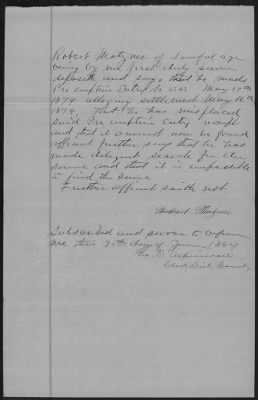 Robert Matznes of lawful age
being by me first duly sworn
deposeth and says, that he made
Pre emption Entry No May 17th
1879 alleging settlement May 16th
1879. That he has misplaced
said Pre emption Entry receipt
and that it cannot now be found
affiant further says that he has
made diligent search for the
same and that it is impossible
to find the same
Further affiant saith not.
Robert
Subscribed and sworn to before
me this 30th day of June 1884
Geo. D. Aspinwall
Clerk Dist Court,